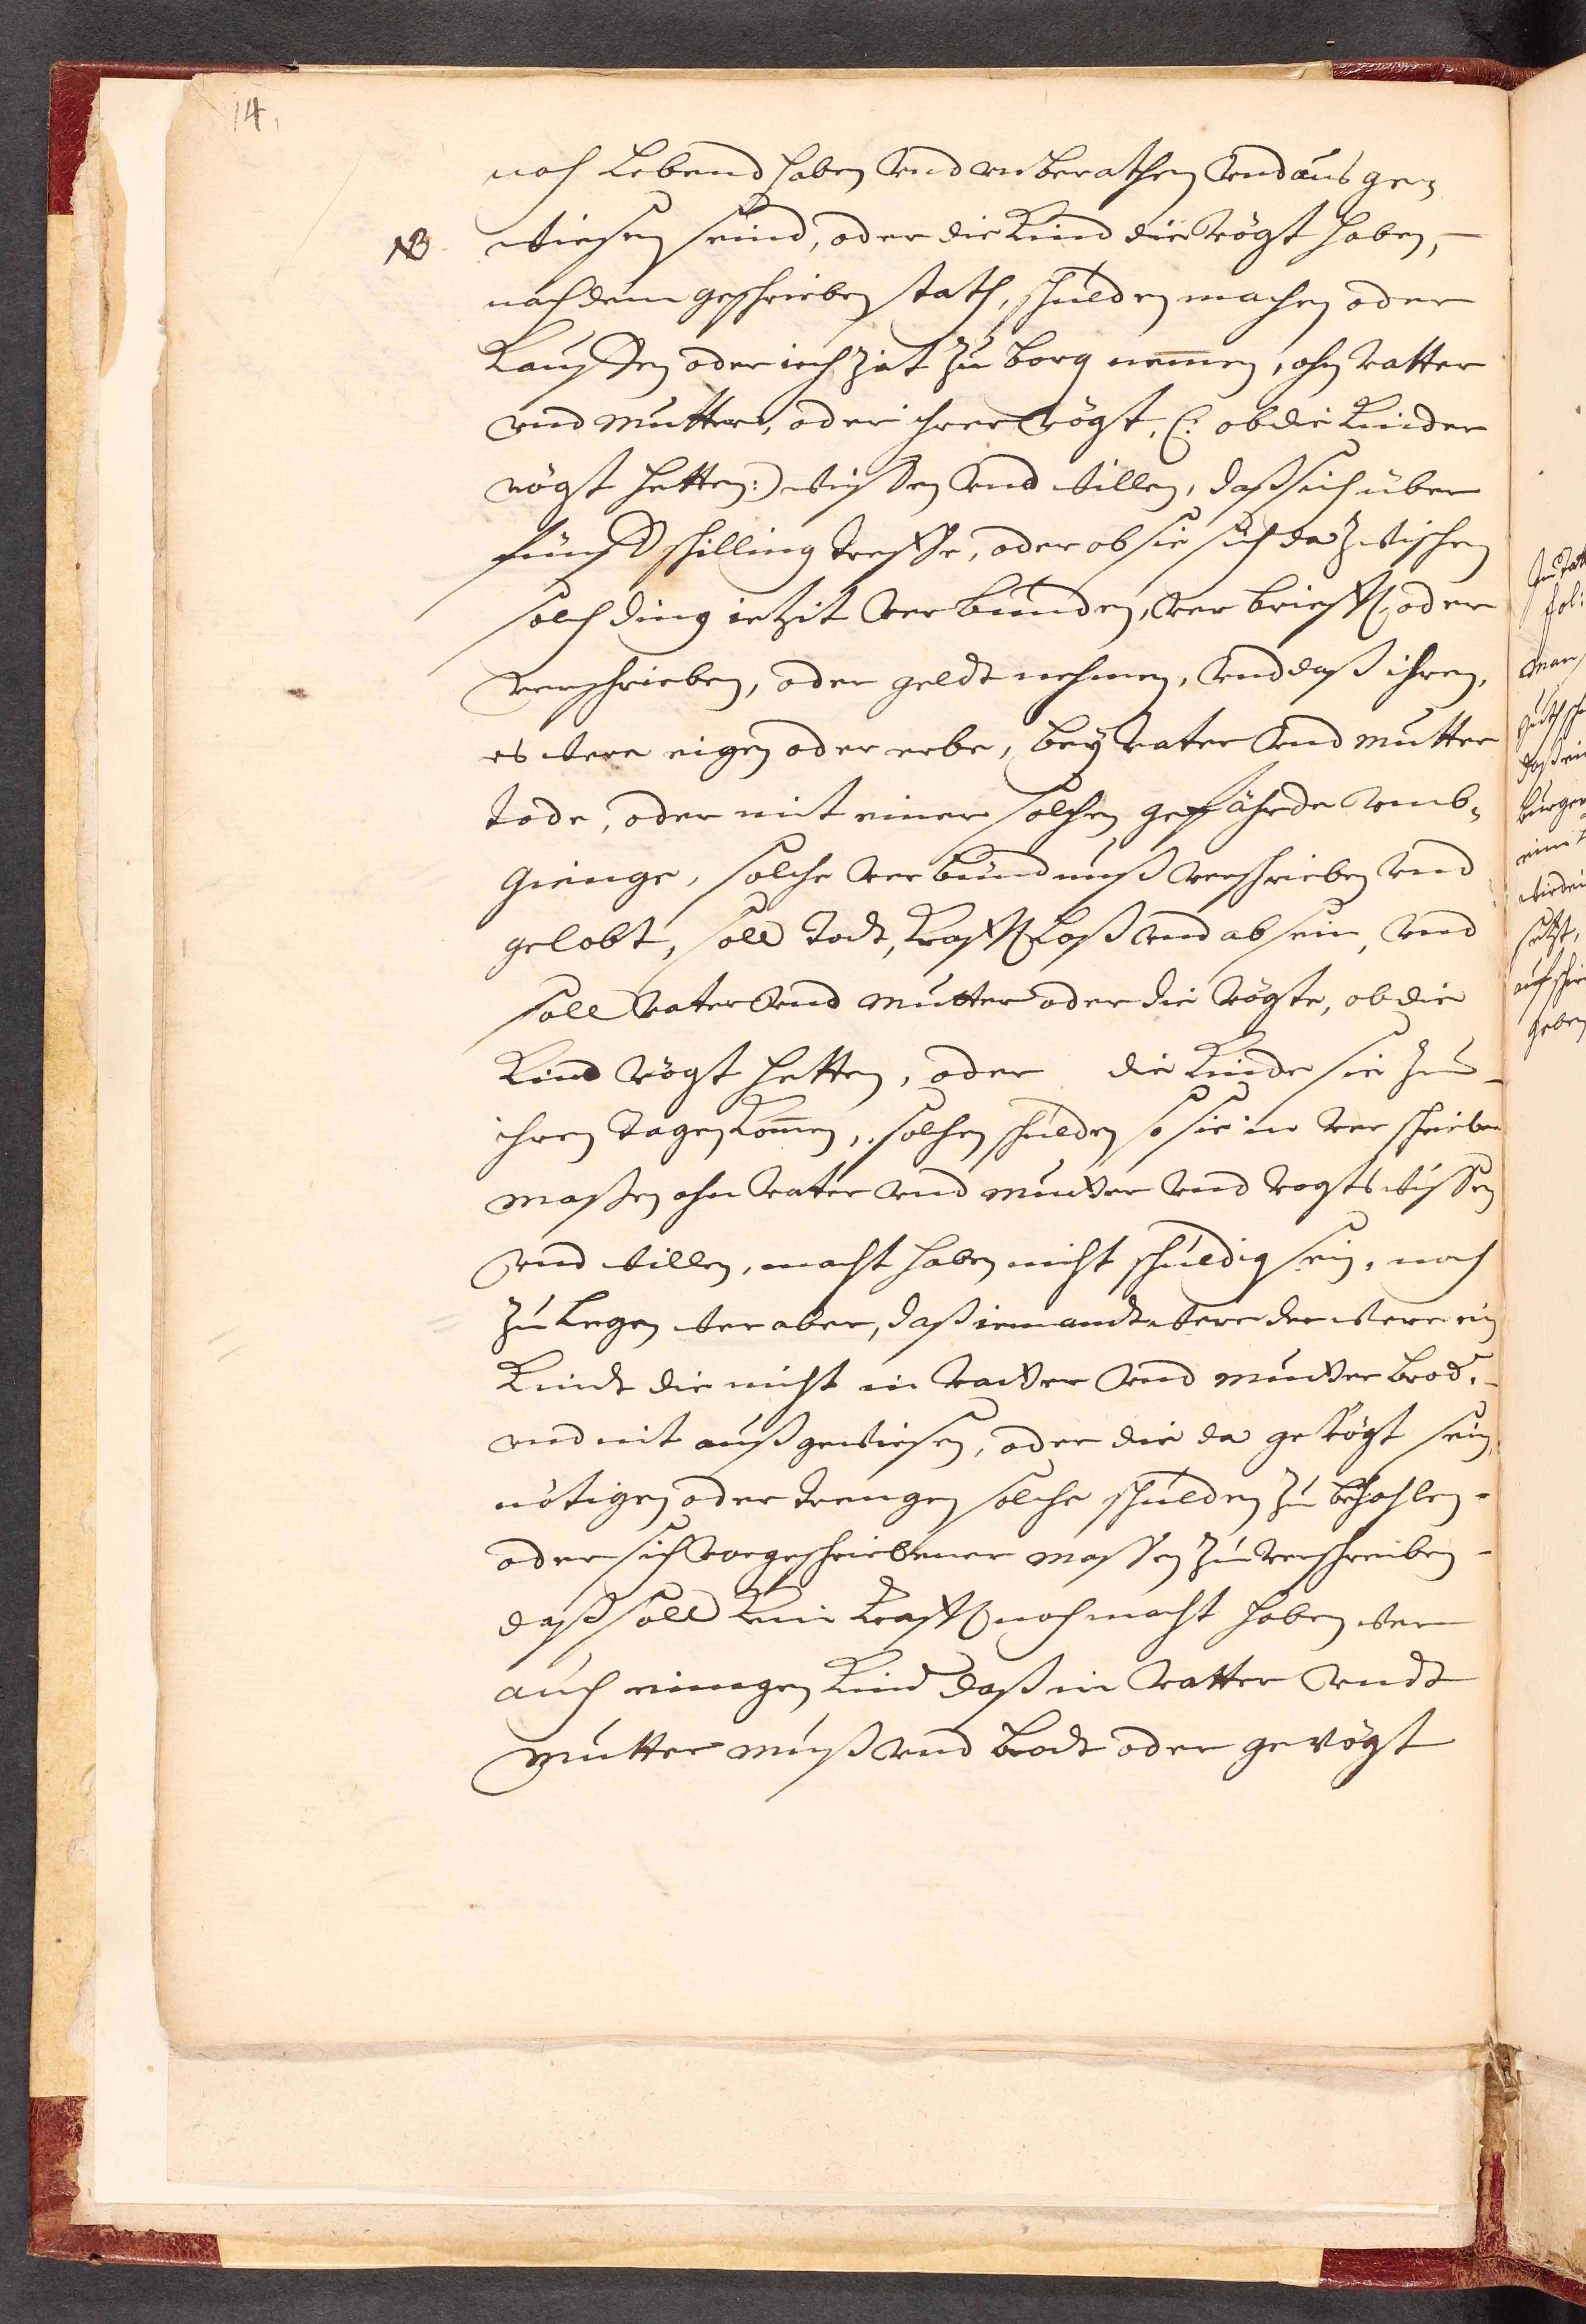 14.
noch Lebend haben und unberathen und aus ge¬
NB wiesen seind, oder die Kind die vögt haben,
nach dem geschrieben stath, schulden machen oder
Kauffen oder iech zit zu borg nemen, ohn vatter
und mutter, oder ihrer vögt, (: ob die Kinder
vögt hetten:) wissen und willen, daß sich über
fünff schilling treffe, oder ob sie sich dazwischen
solch ding iezit verbunden, verbrieff oder
verschrieben, oder geldt nehmen, und daß ihren,
es were eigen oder erbe, bey vater und mutter
tode, oder mit einer solchen gefährde umb¬
gienge, solche verbündnuß verschrieben und
gelobt, soll todt, Krafftloß und ab sein, und
soll vater und mutter oder die vögte, ob die
Kind vögt hetten, oder die Kinde sie zu
ihren tagen komen, solchen schulden so sie in verschrieben
massen ohn vater und mutter und vogts wissen
und willen, macht haben nicht schuldig sein, noch
zu Legen wer aber, daß iemandt were der were ein
Kindt die nicht in vatter und mutter brod,
und nit außgewiesen, oder die da gevögt sein,
nötigen oder trengen solche schulden zu bezahlen
oder sich vorgeschriebener massen zu verschreiben
daß soll kein Krafft noch macht haben wer
auch einigen Kind daß in vatter undt
mutter muß und brodt oder gevögt
fol:
burger
setzt,
geben